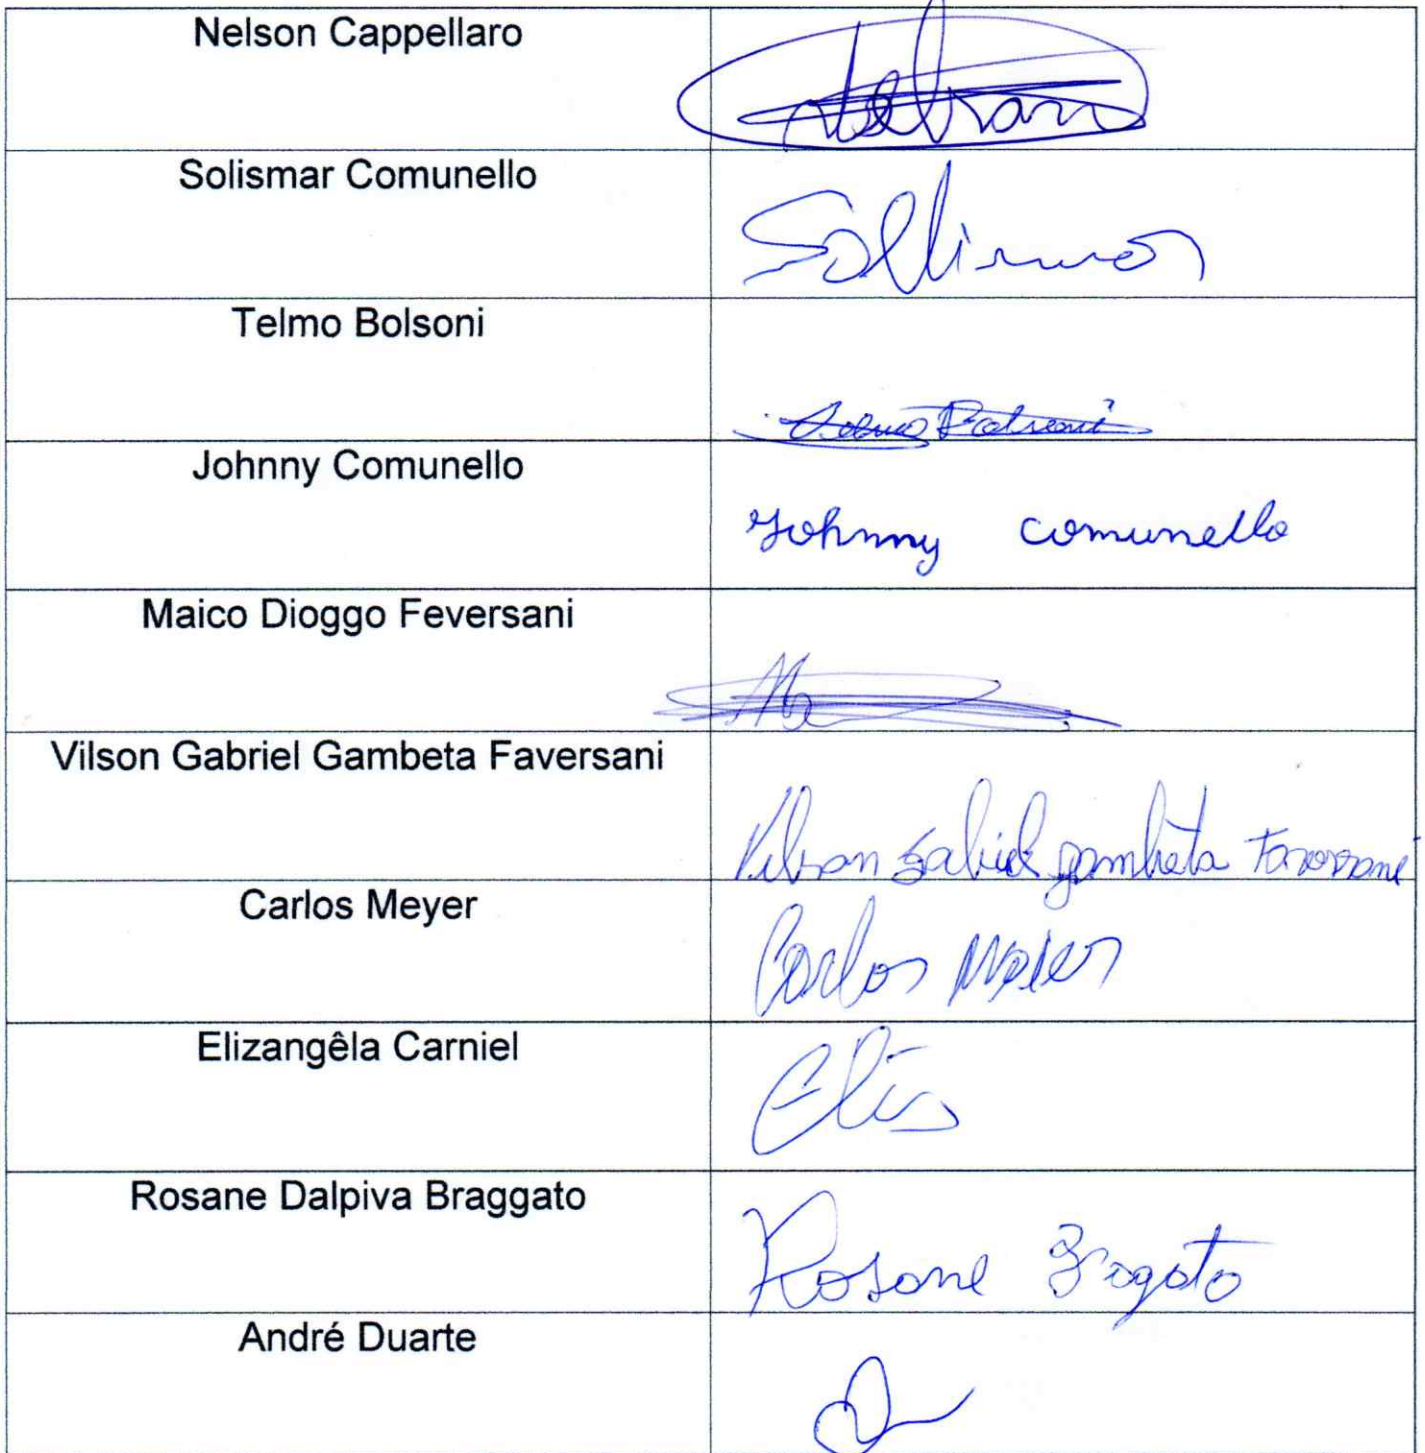 Nelson Cappellaro
Solismar Comunello
Sollismar
Telmo Bolsoni
Telmo Bolsoni
Johnny Comunello
Johnny comunello
Maico Dioggo Feversani
Vilson Gabriel Gambeta Faversani
Vilson Gabriel gambeta Faversani
Carlos Meyer
Carlos Meier
Elizangêla Carniel
Eliz
Rosane Dalpiva Braggato
Rosane Bragato
André Duarte